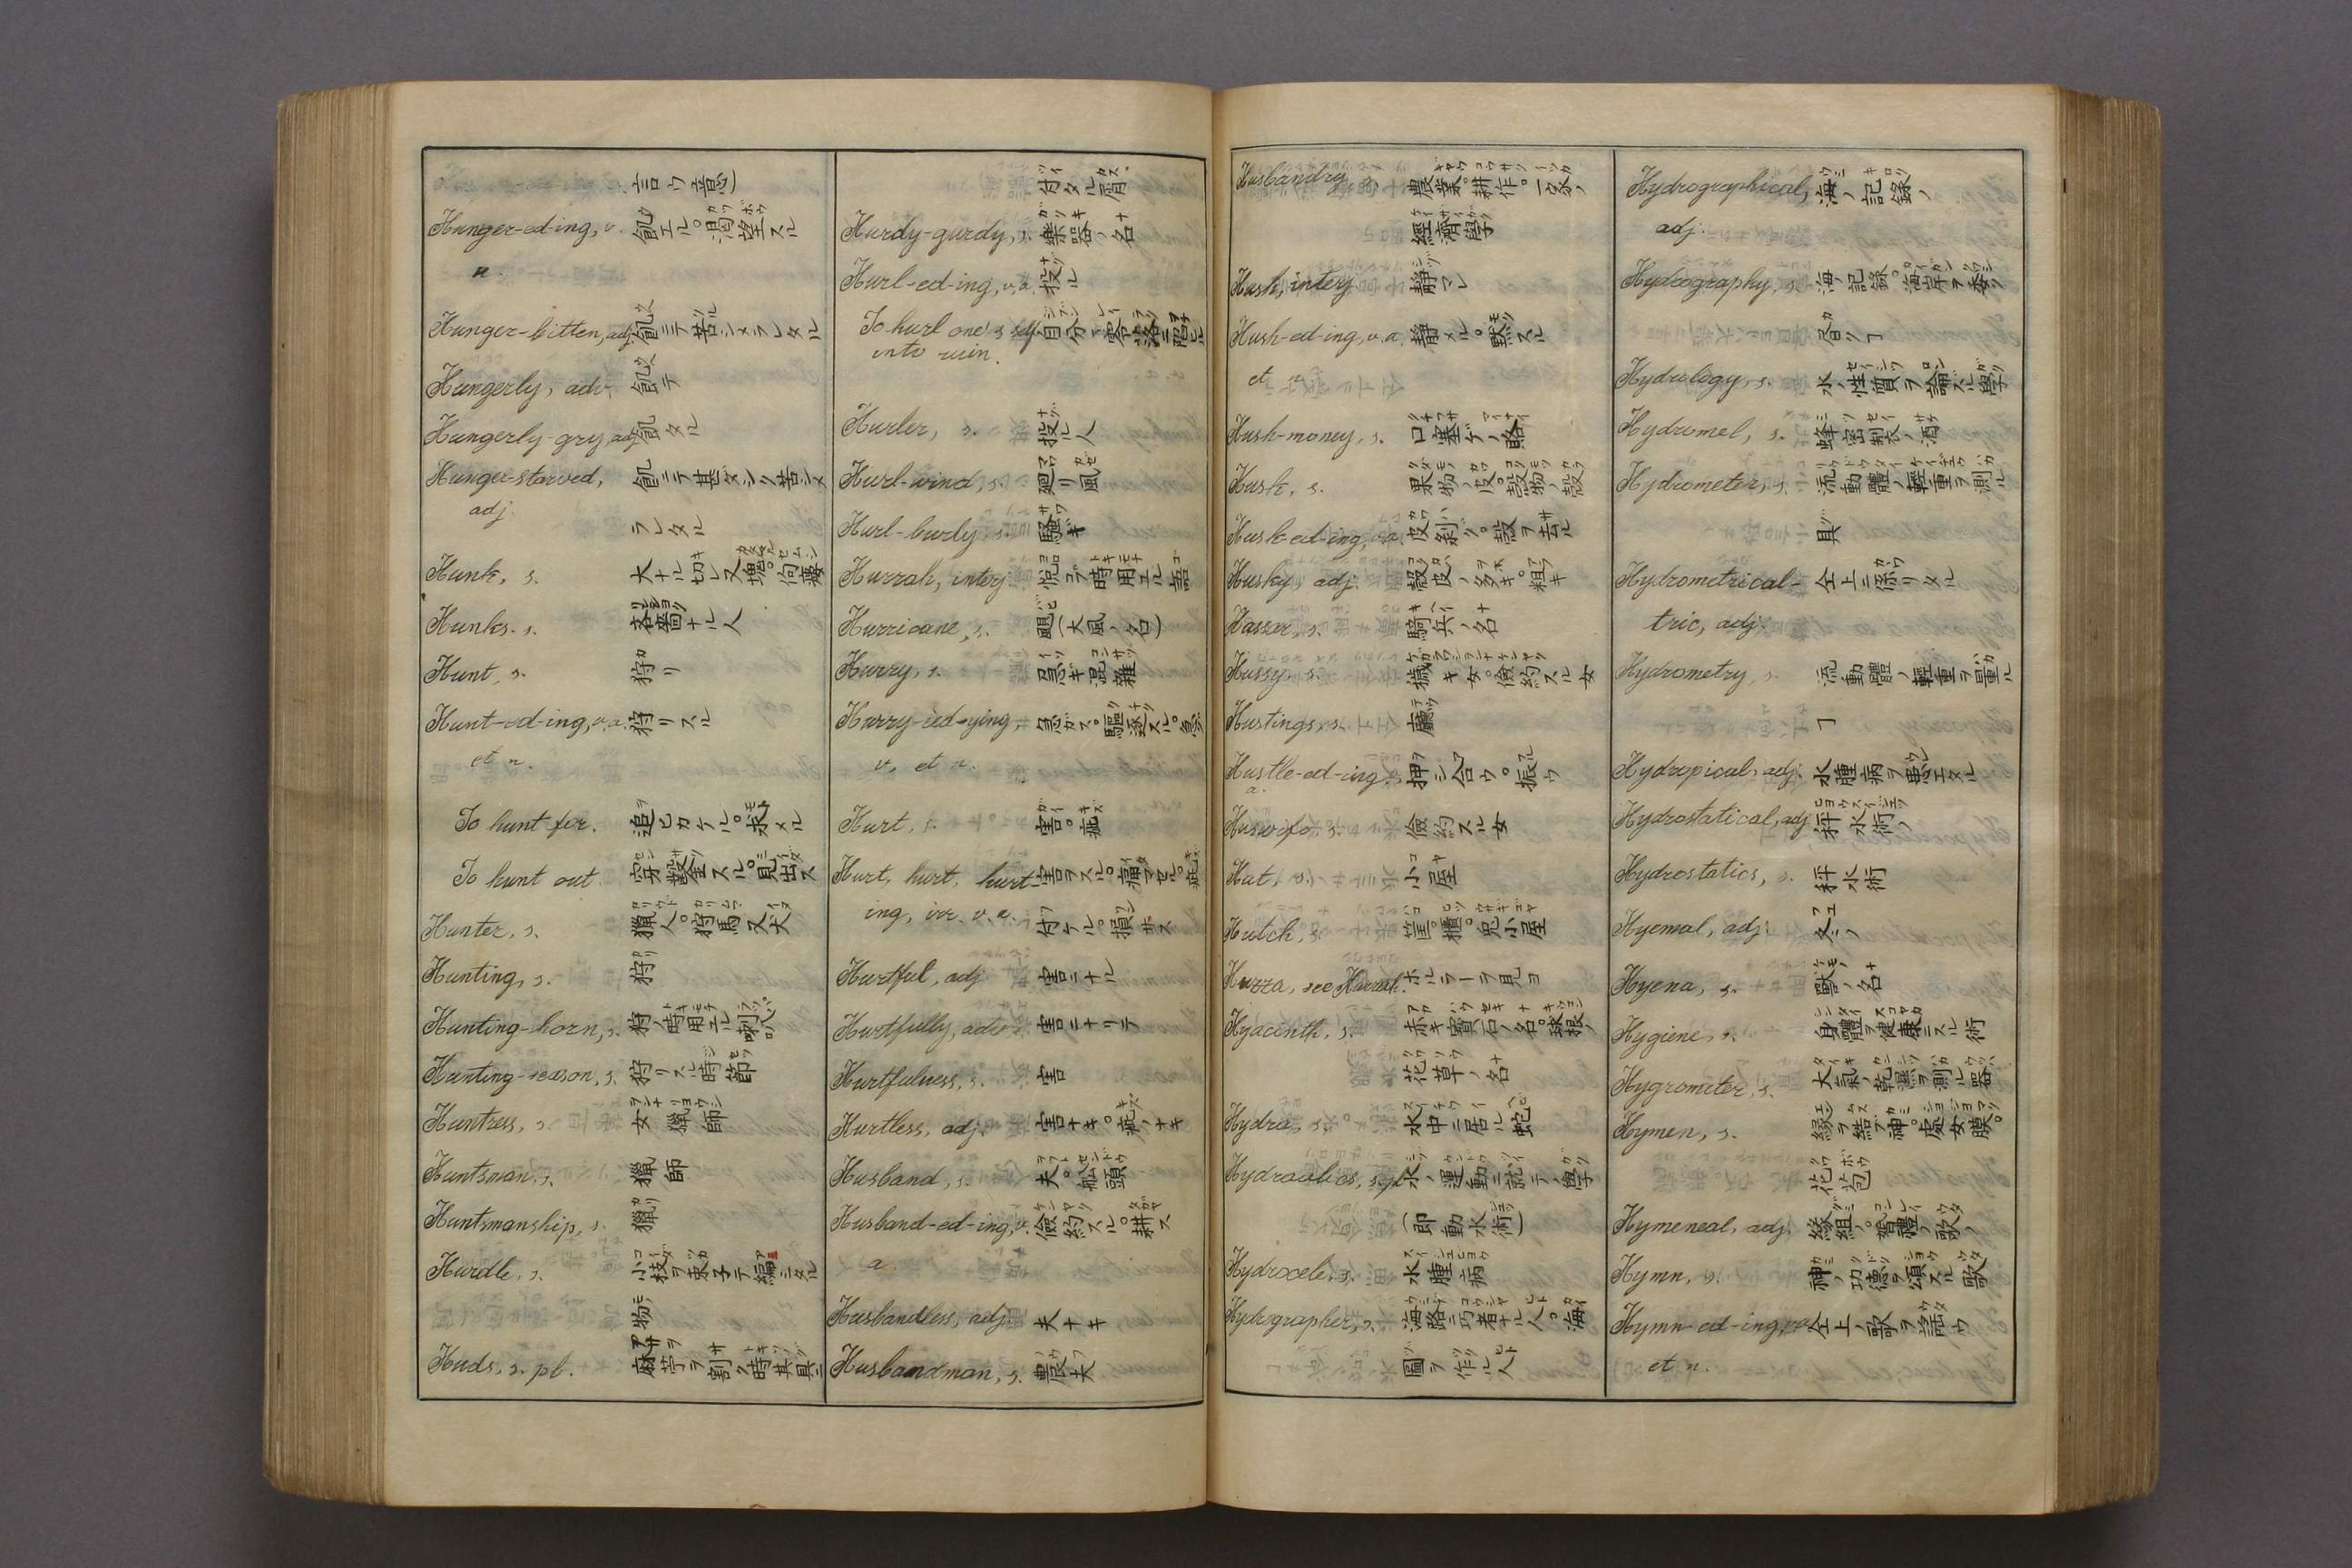 言ウ意)
Hunger-ed-ing, v. 飢エル。渇望スル
n.
Hunger-bitten, adj. 飢ニテ苦シメラレタル
Hungerly, adv. 飢テ
Hungerly-gry, adj. 飢タル
Hunger-starved, 飢ニテ甚ダシク苦シメ
adj. ラレタル
Hunk, s. 大ナル切レ又塊。佝僂
Hunks. s. 吝嗇ナル人
Hunt, s. 狩リ
Hunt-ed-ing, v.a. 狩リスル
et n.
To hunt for. 追ヒカケル。求メル
To hunt out. 穿鑿スル。見出ス
Hunter, s. 獵人。狩馬又犬
Hunting, s. 狩
Hunting-horn, s. 狩ノ時用エル喇叭
Hunting-season, s. 狩リスル時節
Huntress, s. 女獵師
Huntsman, s. 獵師
Huntsmanship, s. 獵
Hurdle, s. 小枝ヲ束子テ編ミタル
物
Huds, s. pl. 麻苧ヲ割ク時其具ニ
付タル屑
Hurdy-gurdy, s. 樂器ノ名
Hurl-ed-ing, v.a. 投ル
To hurl one's self 自分デ零落ニ陷ヒル
into ruin.
Hurler, s. 投ル人
Hurl-wind, s. 廻リ風
Hurl-burly, s. 騷ギ
Hurrah, interj. 悦コブ時用エル語
Hurricane, s. 颶(大風ノ名)
Hurry, s. 急ギ混雜
Hurry-ied-ying, 急ガス。驅逐スル。急グ
v, et n.
Hurt, s. 害。疵
Hurt, hurt, hurt- 害ヲスル。痛マセル。疵
ing, irr. v. a. 付ケル。損ザス
Hurtful, adj. 害ニナル
Hurtfully, adv. 害ニナリテ
Hurtfulness, s. 害
Hurtless, adj. 害ナキ。疵ノナキ
Husband, s. 夫。舩頭
Husband-ed-ing, v. 儉約スル。耕ス
a.
Husbandless, adj. 夫ナキ
Husbandman, s. 農夫
Husbandry, s. 農業。耕作。一家ノ
經濟學
Hush, interj. 靜マレ
Hush-ed-ing, v.a. 靜メル。黙スル
et n.
Hush-money, s. 口塞ゲノ賂
Husk, s. 果物ノ皮。穀物ノ殻
Husk-ed-ing, v.a. 皮剝グ。殻ヲ去ル
Husky, adj. 殻皮ノ多キ。粗キ
Hussar, s. 騎兵ノ名
Hussy, s. 穢キ女。儉約スル女
Hustings, s. 廳
Hustle-ed-ing, 押シ合ウ。振ウ
a.
Huswife, s. 儉約スル女
Hut, s. 小屋
Hutch, s. 筐。櫃。兎小屋
Huzza, see Hurrah. ホルラーヲ見ヨ
Hyacinth, s. 赤キ寶石ノ名。球根ノ
花草ノ名
Hydra, s. 水中ニ居ル蛇
Hydraulics, s.pl. 水ノ運動ニ就テノ學
(即動水術)
Hydrocele, s. 水腫病
Hydrographer, s. 海路ニ巧者ナル人。海
圖ヲ作ル人
Hydrographical, 海ノ記錄ノ
adj.
Hydrography, s. 海ノ記錄。海岸ヲ委ク
畨ク𠃍
Hydrology, s. 水ノ性質ヲ論スル學
Hydromel, s. 蜂密製ノ酒
Hydrometer, s. 流動體ノ輕重ヲ測ル
具
Hydrometrical- 仝上ニ係リタル
tric, adj.
Hydrometry, s. 流動體ノ輕重ヲ量ル
𠃍
Hydropical, adj. 水腫病ヲ患エタル
Hydrostatical, adj. 秤水術ノ
Hydrostatics, s. 秤水術
Hyemal, adj. 冬ノ
Hyena, s. 獸ノ名
Hygiene, s. 身體ヲ健康ニスル術
Hygrometer, s. 大氣ノ乾濕ヲ測ル器
Hymen, s. 縁ヲ結ブ神。處女膜。
花苞
Hymeneal, adj. 縁組ノ。婚禮ノ歌ノ
Hymn, s. 神ノ功德ヲ頌スル歌
Hymn-ed-ing, v.a. 仝上ノ歌ヲ謡ウ
et n.